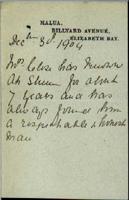 MALUA,
BILLYARD AVENUE,
ELIZABETH BAY.
Dec 3rd 1904
Mr Close has
for about
7 years and has
always found him
a respectable & honest
man